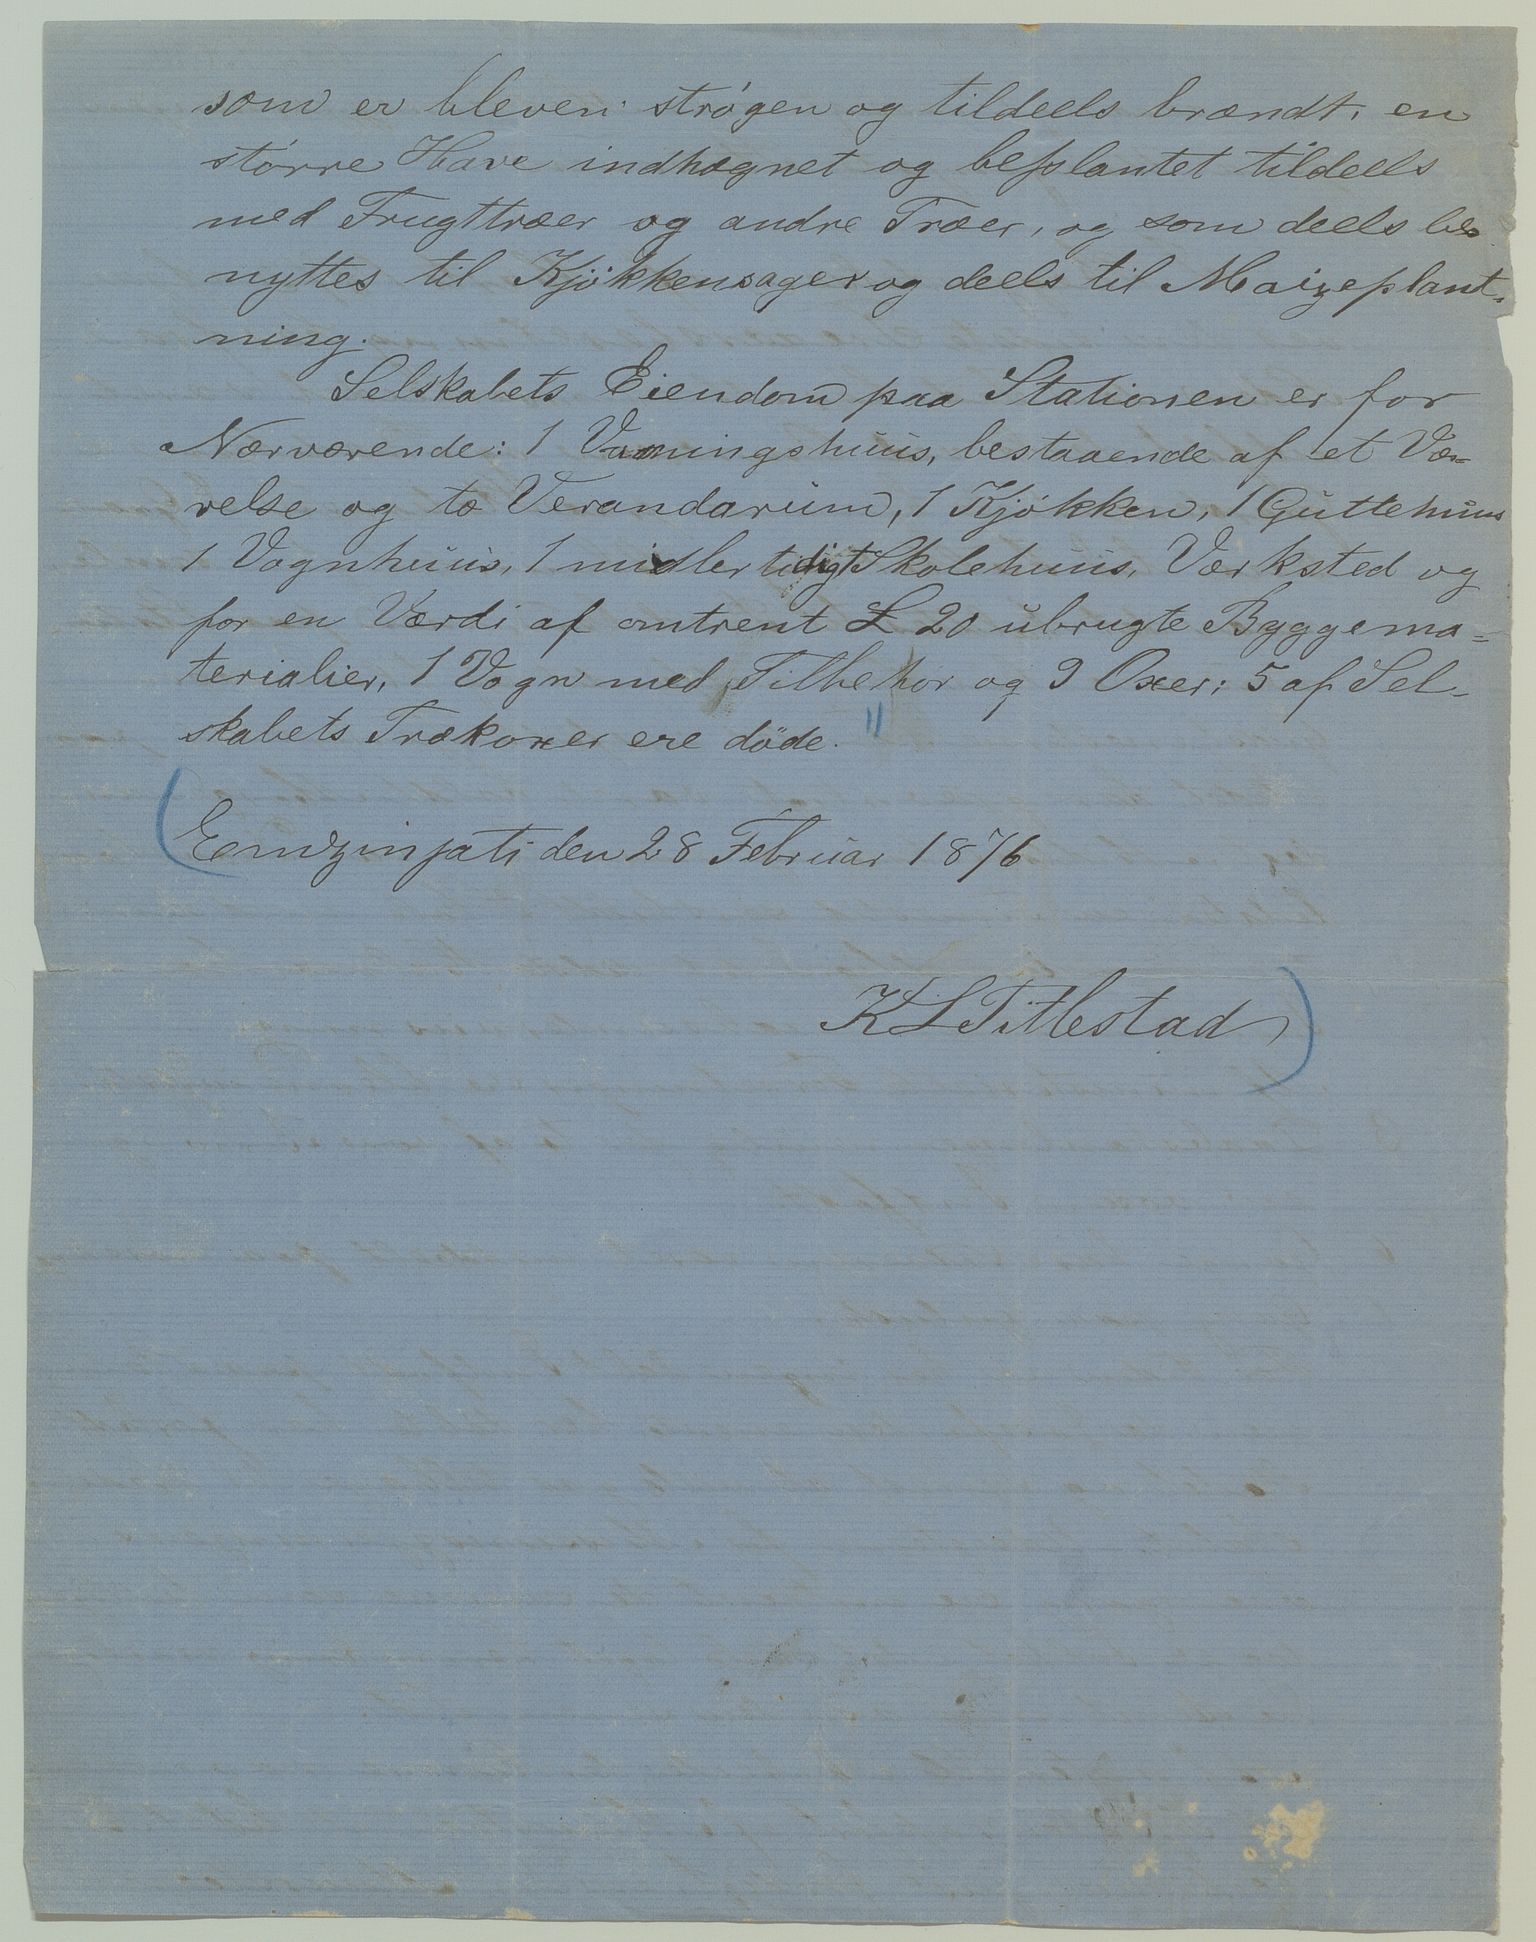 som er bleven strøgen og tildeels brændt, en
større Have indhægnet og beplantet tildeels
med Frugttræer og andre Træer, og som deels be-
nyttes til Kjøkkensager og deels til Maizeplant-
ning.
Selskabets Eiendom paa Stationen er for
Nærværende: 1 Vaaningshuus, bestaaende af et Væ-
relse og to Verandarum, 1 Kjøkken, 1 Guttehuus
1 Vognhuus, 1 midlertidigt Skolehuus, Værksted og
for en Værdi af omtrent £ 20 ubrugte Byggema=
terialier, 1 Vogn med Tilbehør og 9 Oxer; 5 af Sel-
skabets Trækoxer ere døde. "
(Emzinjati den 28 Februar 1876
K L Titlestad)